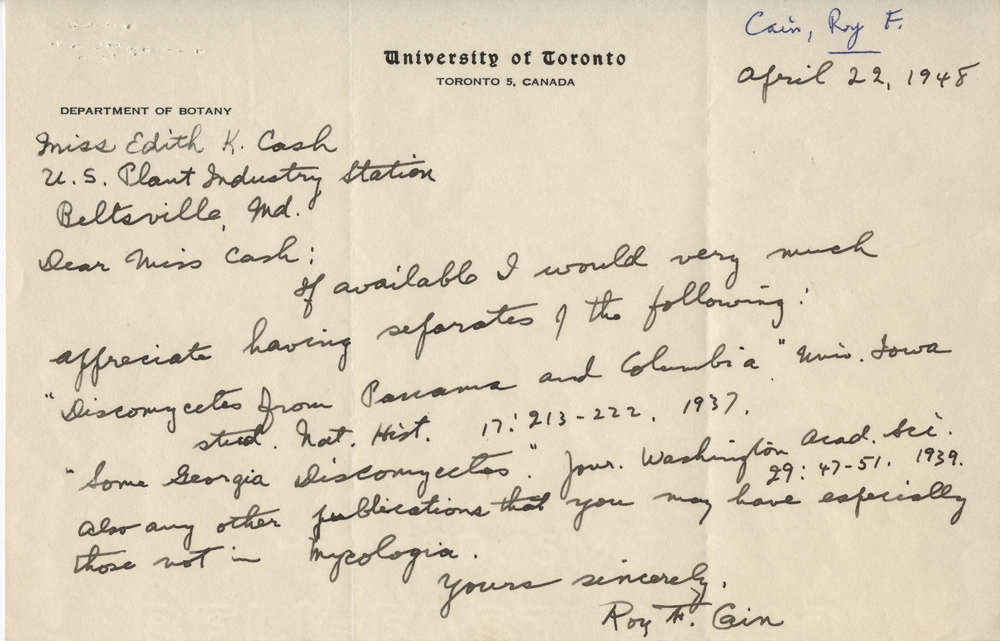 Cain, Roy F.
University of Toronto
TORONTO 5, CANADA
April 22, 1948
DEPARTMENT OF BOTANY
Miss Edith K. Cash
U.S. Plant Industry Station
Beltsville, Md.
Dear Miss Cash:
If available I would very much
appreciate having separates of the following:
"Discomycetes from Panama and Columbia" Univ. Iowa
stud. Nat. Hist. 17:213-222. 1937.
"Some Georgia Discomycetes." Jour. Washington Acad. Sci.
29:47-51. 1939.
Also any other publications that you may have especially
those not in Mycologia.
Yours sincerely,
Roy F. Cain